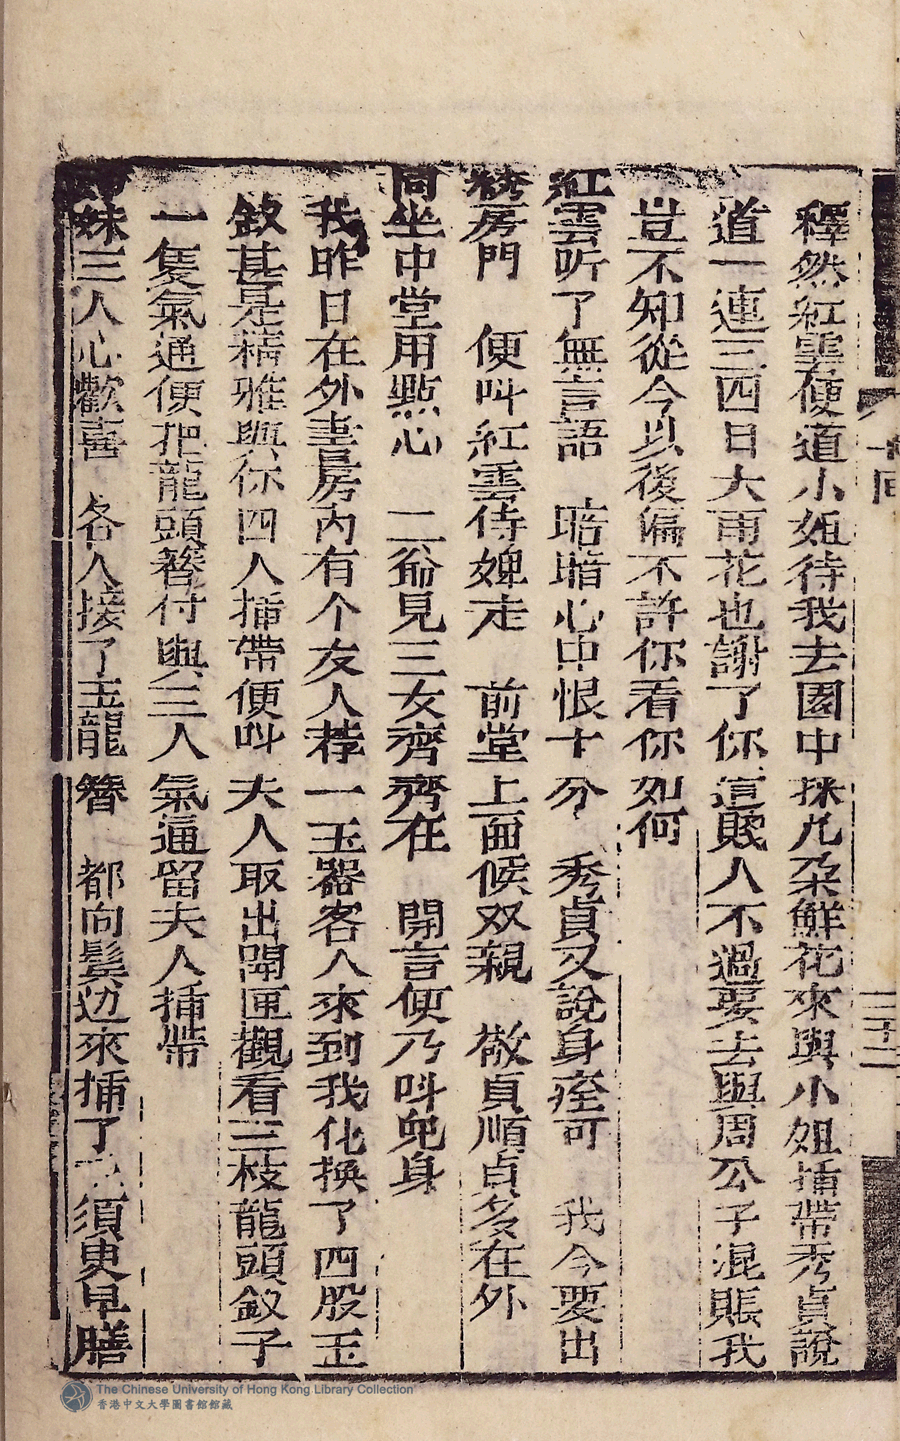 釋然紅雲便道小姐待我去園中採几朶鮮花來與小姐插帶秀貞說
道一連三四日大雨花也謝了你這賤人不過要去與周公子混賬我
豈不知從今以後偏不許你看你如何
紅雲听了無言語 暗暗心中恨十分 秀貞又說身痊可 我今要出
綉房門 便呌紅雲侍婢走 前堂上面候双親 敬貞順貞多在外
同坐中堂用點心 二爺見三女齊齊在 開言便乃呌兒身
我昨日在外書房內有个友人荐一玉器客人來到我化換了四股玉
釵甚是精雅與你四人插帶便呌夫人取出開匣觀看三枝龍頭釵子
一隻氣通便把龍頭簪付與三人氣通留夫人插帶
姊妹三人心歡喜 各人接了玉龍簪 都向鬓边來插了 須臾早膳
十回
三十二
The Chinese University of Hong Kong Library Collection
香港中文大學圖書館館藏